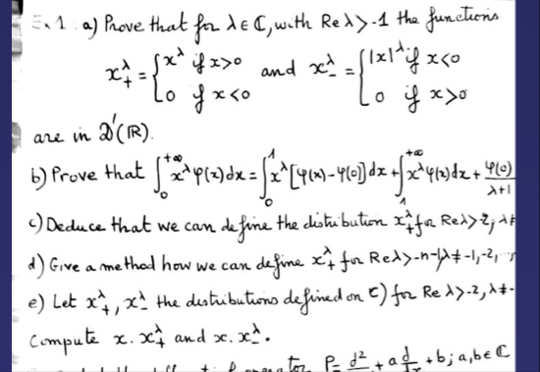 Ex 1 a) Prove that for λ∈ℂ, with Re λ>-1 the functions
x₊^λ = { x^λ if x>0
0 if x<0 and x₋^λ = { |x|^λ if x<0
0 if x>0
are in 𝒟'(ℝ).
b) Prove that ∫₀^{+∞} x^λ φ(x)dx = ∫₀^1 x^λ [φ(x)-φ(0)] dx + ∫₁^{+∞} x^λ φ(x)dx + φ(0)/(λ+1)
c) Deduce that we can define the distribution x₊^λ for Re λ>-2, λ≠
d) Give a method how we can define x₊^λ for Re λ>-n-1, λ≠-1,-2,
e) Let x₊^λ, x₋^λ the distributions defined on c) for Re λ>-2, λ≠-
Compute x.x₊^λ and x.x₋^λ.
P= d²/ + a d/ + b; a,b∈ℂ